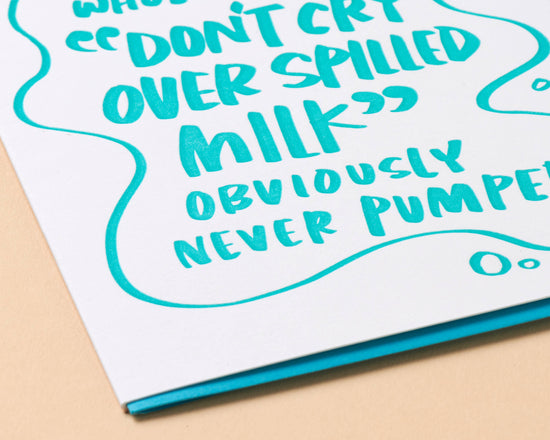 “DON'T CRY
OVER SPILLED
MILK”
OBVIOUSLY
NEVER PUMPE